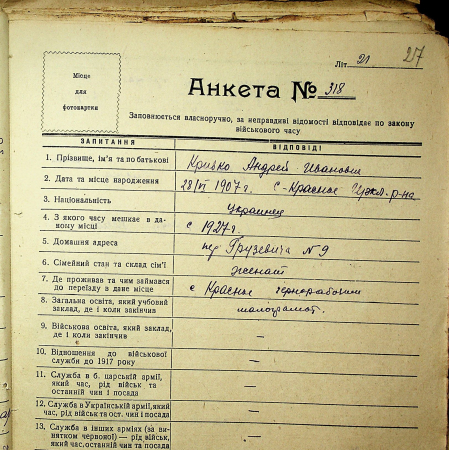 Літ. 21
27
Місце
для
фотокартки
Анкета № 318
Заповнюється власноручно, за неправдиві відомості відповідає по закону
військового часу
ЗАПИТАННЯ ВІДПОВІДІ
1. Прізвище, ім'я та по батькові Андрей Иванович
2. Дата та місце народження 28/VI 1907 г. с-Красное р-на
3. Національність Украинец
4. З якого часу мешкає в да-
ному місці с 1927 г.
5. Домашня адреса пер Грузевича № 9
6. Сімейний стан та склад сім'ї женат
7. Де проживав та чим займався
до переїзду в дане місце с Красное чернорабочим
8. Загальна освіта, який учбовий
заклад, де і коли закінчив малограмот.
9. Військова освіта, який заклад,
де і коли закінчив —
10. Відношення до військової
служби до 1917 року —
11. Служба в б. царській армії,
який час, рід військ та
останній чин і посада —
12. Служба в Українській армії, який
час, рід військ та ост. чин і посада —
13. Служба в інших арміях (за ви-
нятком червоної) — рід військ,
який час, останній чин та посада —